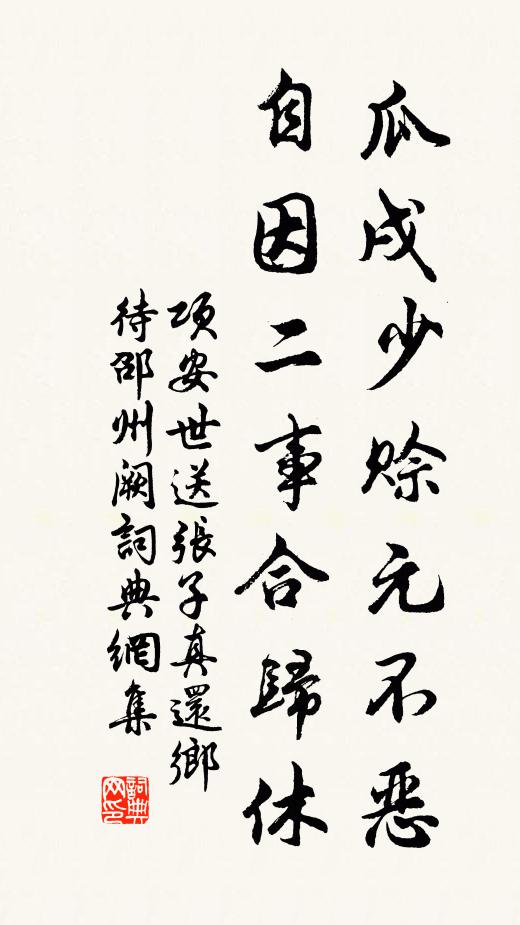 瓜戌少賒元不惡
自因二事合歸休
項安世送張子真還鄉
待邵州闕詞典網集
詞典网印